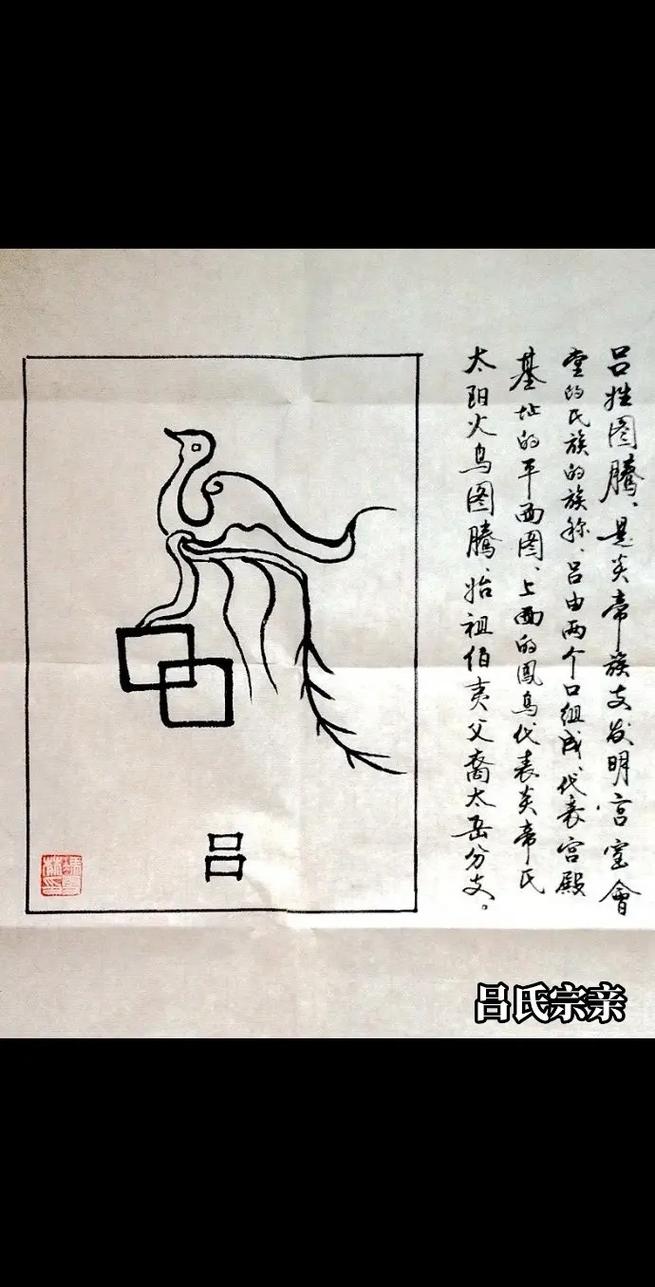 吕姓图腾、是炎帝族支发明宫室會
堂的民族的族称、吕由两个口组成、代表宫殿
基址的平面图、上面的鳳鸟代表炎帝氏
太阳火鸟图腾、始祖伯夷父裔太岳分支。
吕
吕氏宗亲